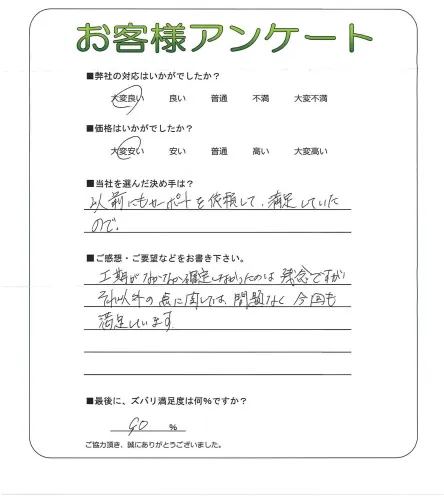 お客様アンケート
■弊社の対応はいかがでしたか?
大変良い 良い 普通 不満 大変不満
■価格はいかがでしたか?
大変安い 安い 普通 高い 大変高い
■当社を選んだ決め手は?
以前にもカーポートを依頼して、満足していた
ので。
■ご感想・ご要望などをお書き下さい。
工期がなかなか確定しなかったのは残念ですが
それ以外の点に関しては、問題なく今回も
満足しています。
■最後に、ズバリ満足度は何%ですか?
90 %
ご協力頂き、誠にありがとうございました。